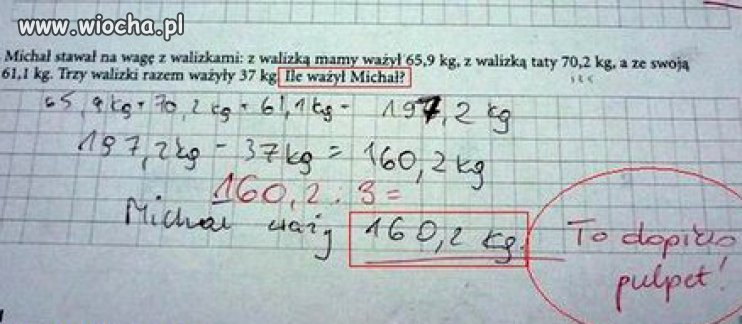 www.wiocha.pl
Michał stawał na wagę z walizkami: z walizką mamy ważył 65,9 kg, z walizką taty 70,2 kg, a ze swoją
61,1 kg. Trzy walizki razem ważyły 37 kg. Ile ważył Michał?
65,9 kg + 70,2 kg + 61,1 kg = 197,2 kg
197,2 kg - 37 kg = 160,2 kg
160,2 : 3 =
Michał waży 160,2 kg.
To dopiero
pulpet!